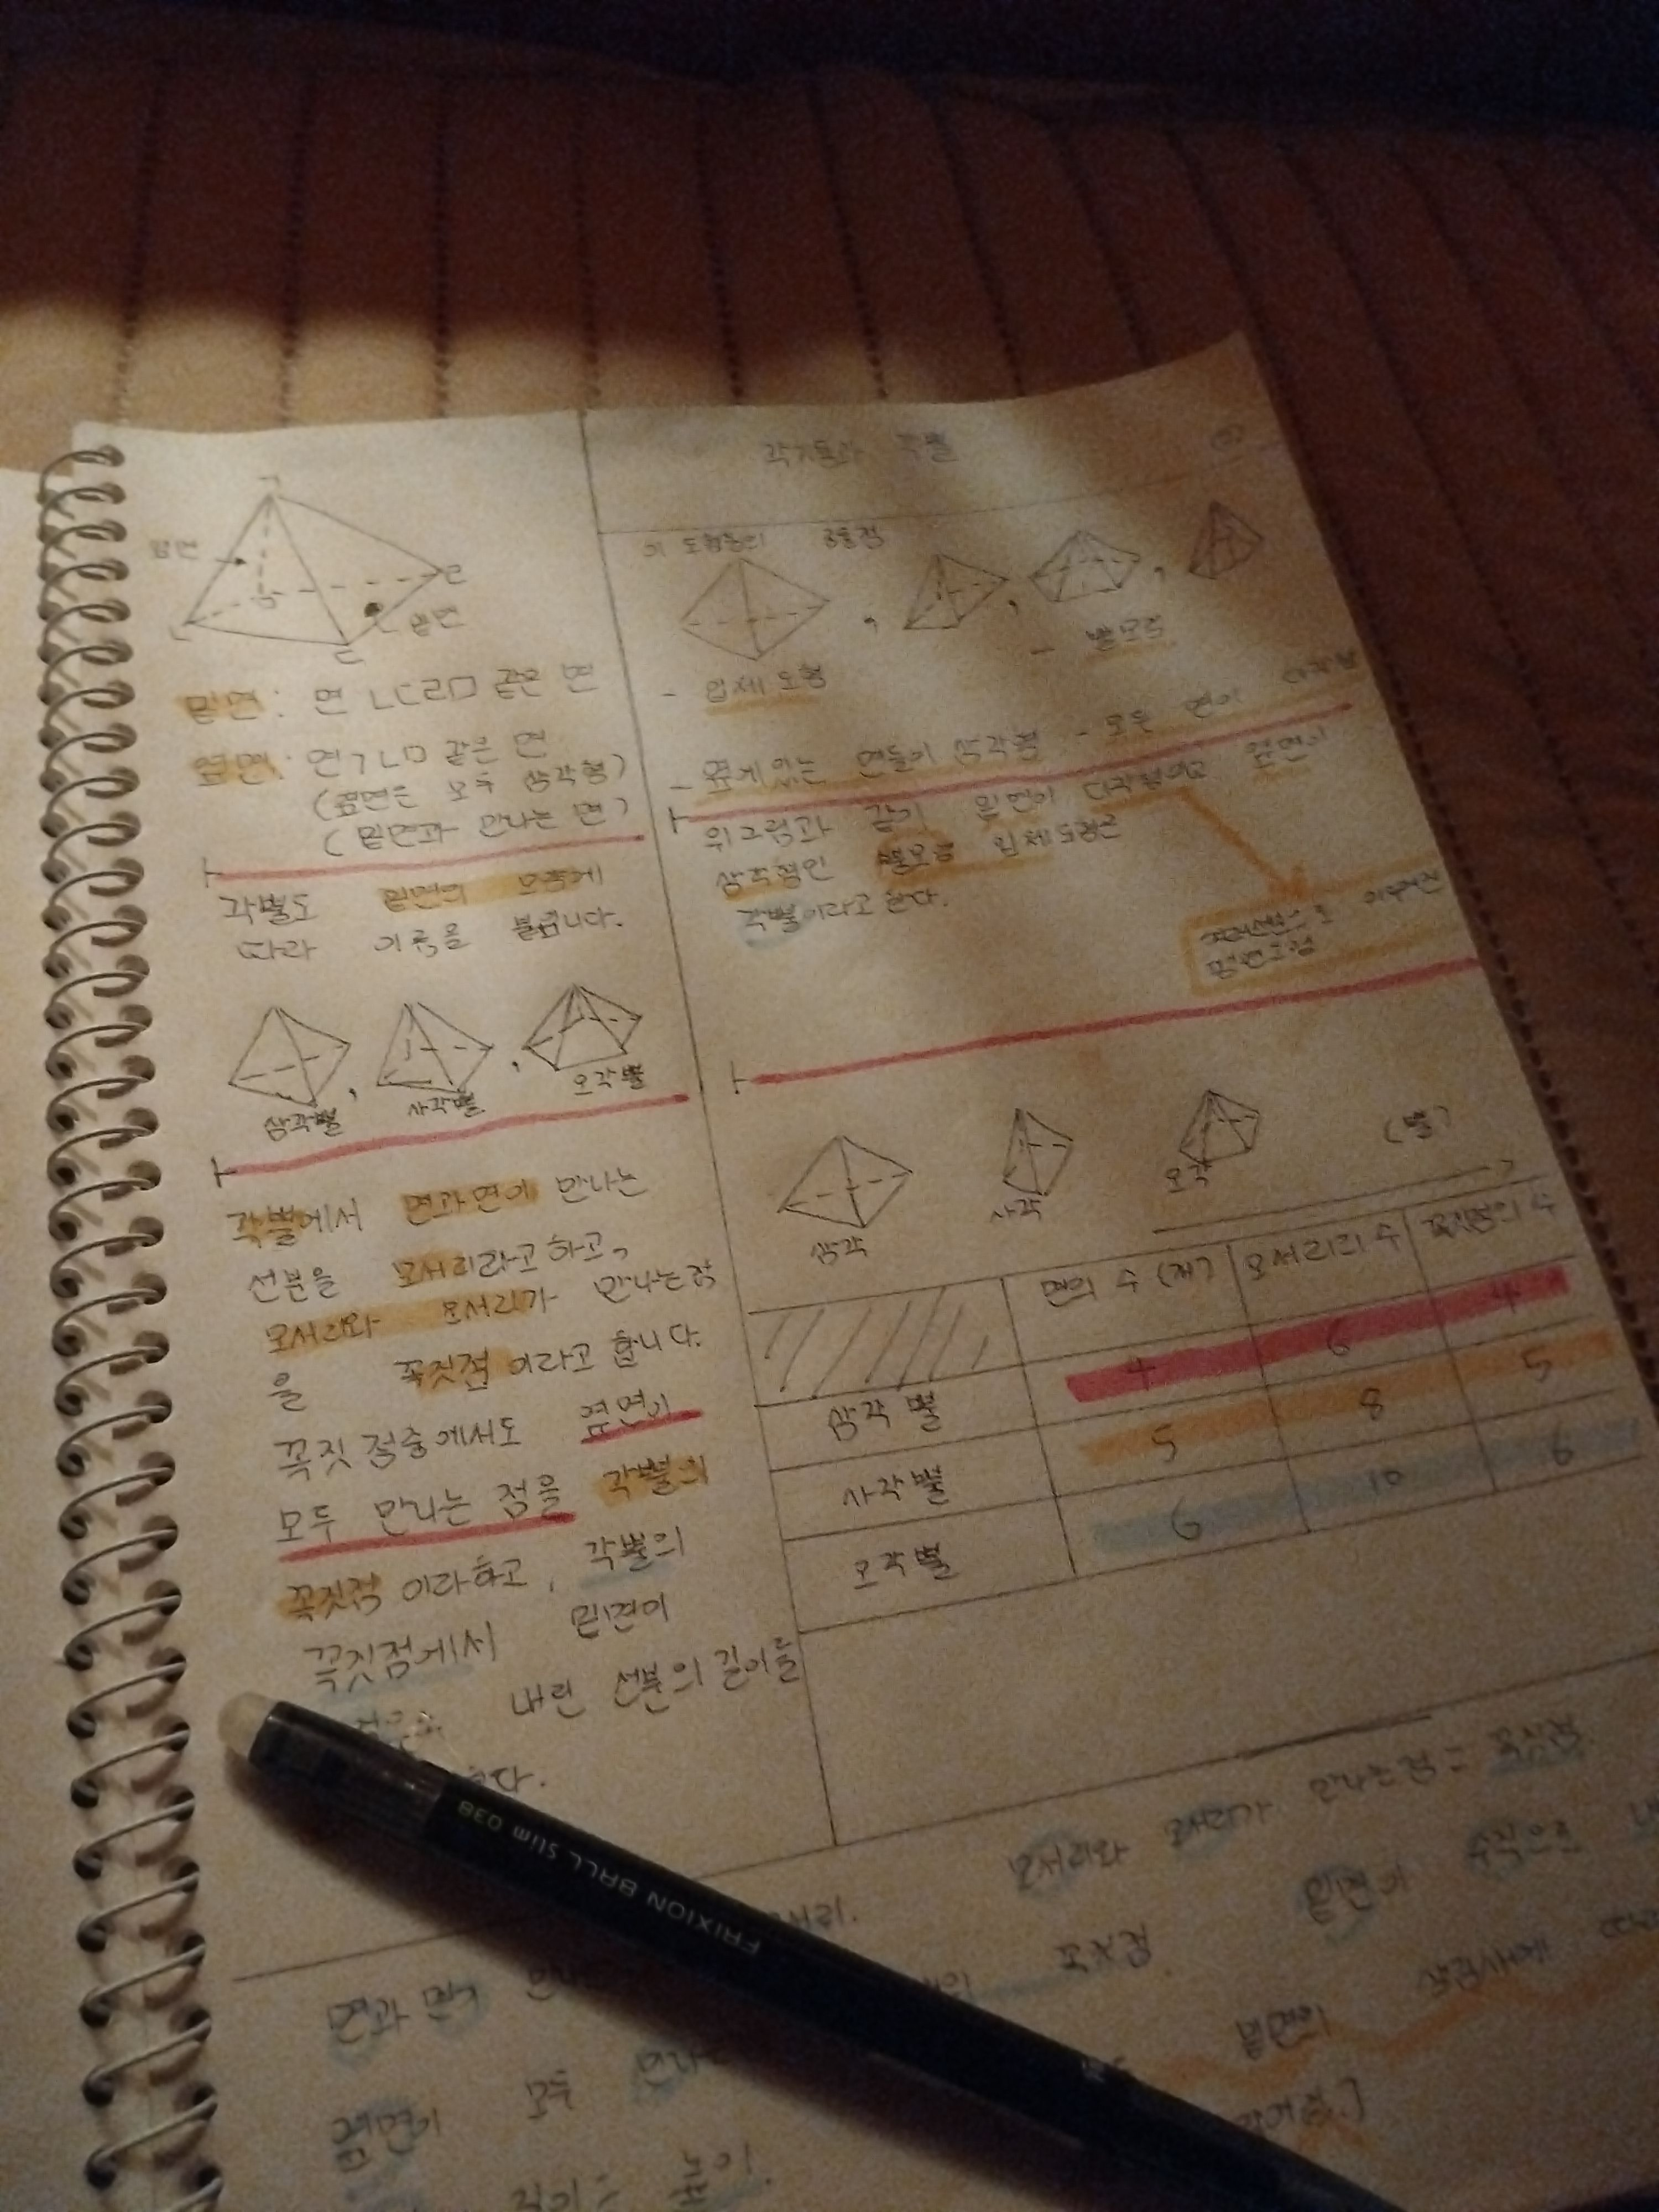 각기둥과 각뿔
옆면
밑면
밑면: 면 ㄴㄷㄹㅁ 같은 면
옆면: 면 ㄱㄴㅁ 같은 면
(옆면은 모두 삼각형)
(밑면과 만나는 면)
각뿔도 밑면의 모양에
따라 이름을 붙입니다.
삼각뿔
사각뿔
오각뿔
각뿔에서 면과 면이 만나는
선분을 모서리라고 하고,
모서리와 모서리가 만나는 점
을 꼭짓점이라고 합니다.
꼭짓점중에서도 옆면이
모두 만나는 점을 각뿔의
꼭짓점이라하고, 각뿔의
꼭짓점에서 밑면이
내린 선분의 길이를
이 도형들의 공통점
- 입체도형
- 뿔모양
- 옆에 있는 면들이 삼각형 - 모두 면이 다각형
위그림과 같이 밑면이 다각형이고 옆면이
삼각형인 뿔모양 입체도형은
각뿔이라고 한다.
이루어진
삼각
사각
오각
(뿔)
면의 수 (개) 모서리의 수 꼭짓점의 수
삼각뿔 4 6 4
사각뿔 5 8 5
오각뿔 6 10 6
모서리와 모서리가 만나는 점 = 꼭짓점
면과 면이
꼭짓점.
밑면이 수직으로
옆면이 모두 만나는
밑면이
길이 = 높이.
FRIXION BALL slim 038